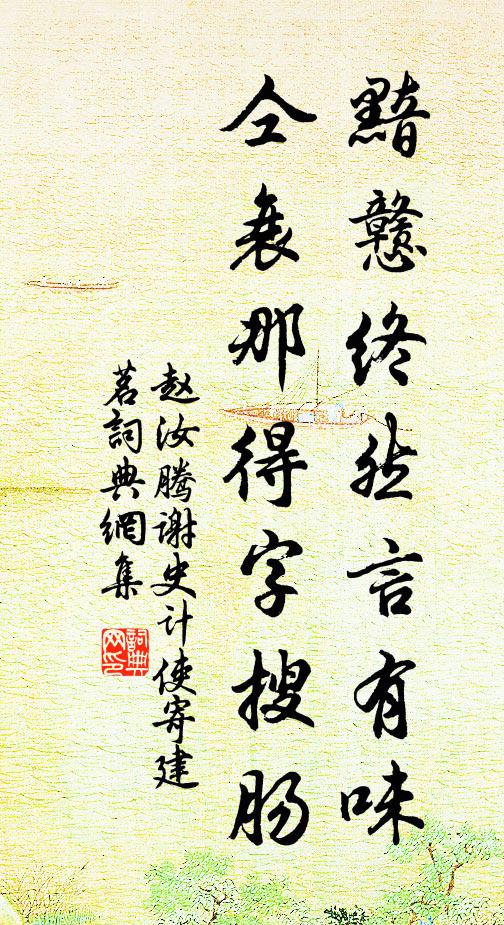 黯戇終然言有味
仝衰那得字搜肠
赵汝腾谢史计使寄建
茗詞典網集
詞典网印